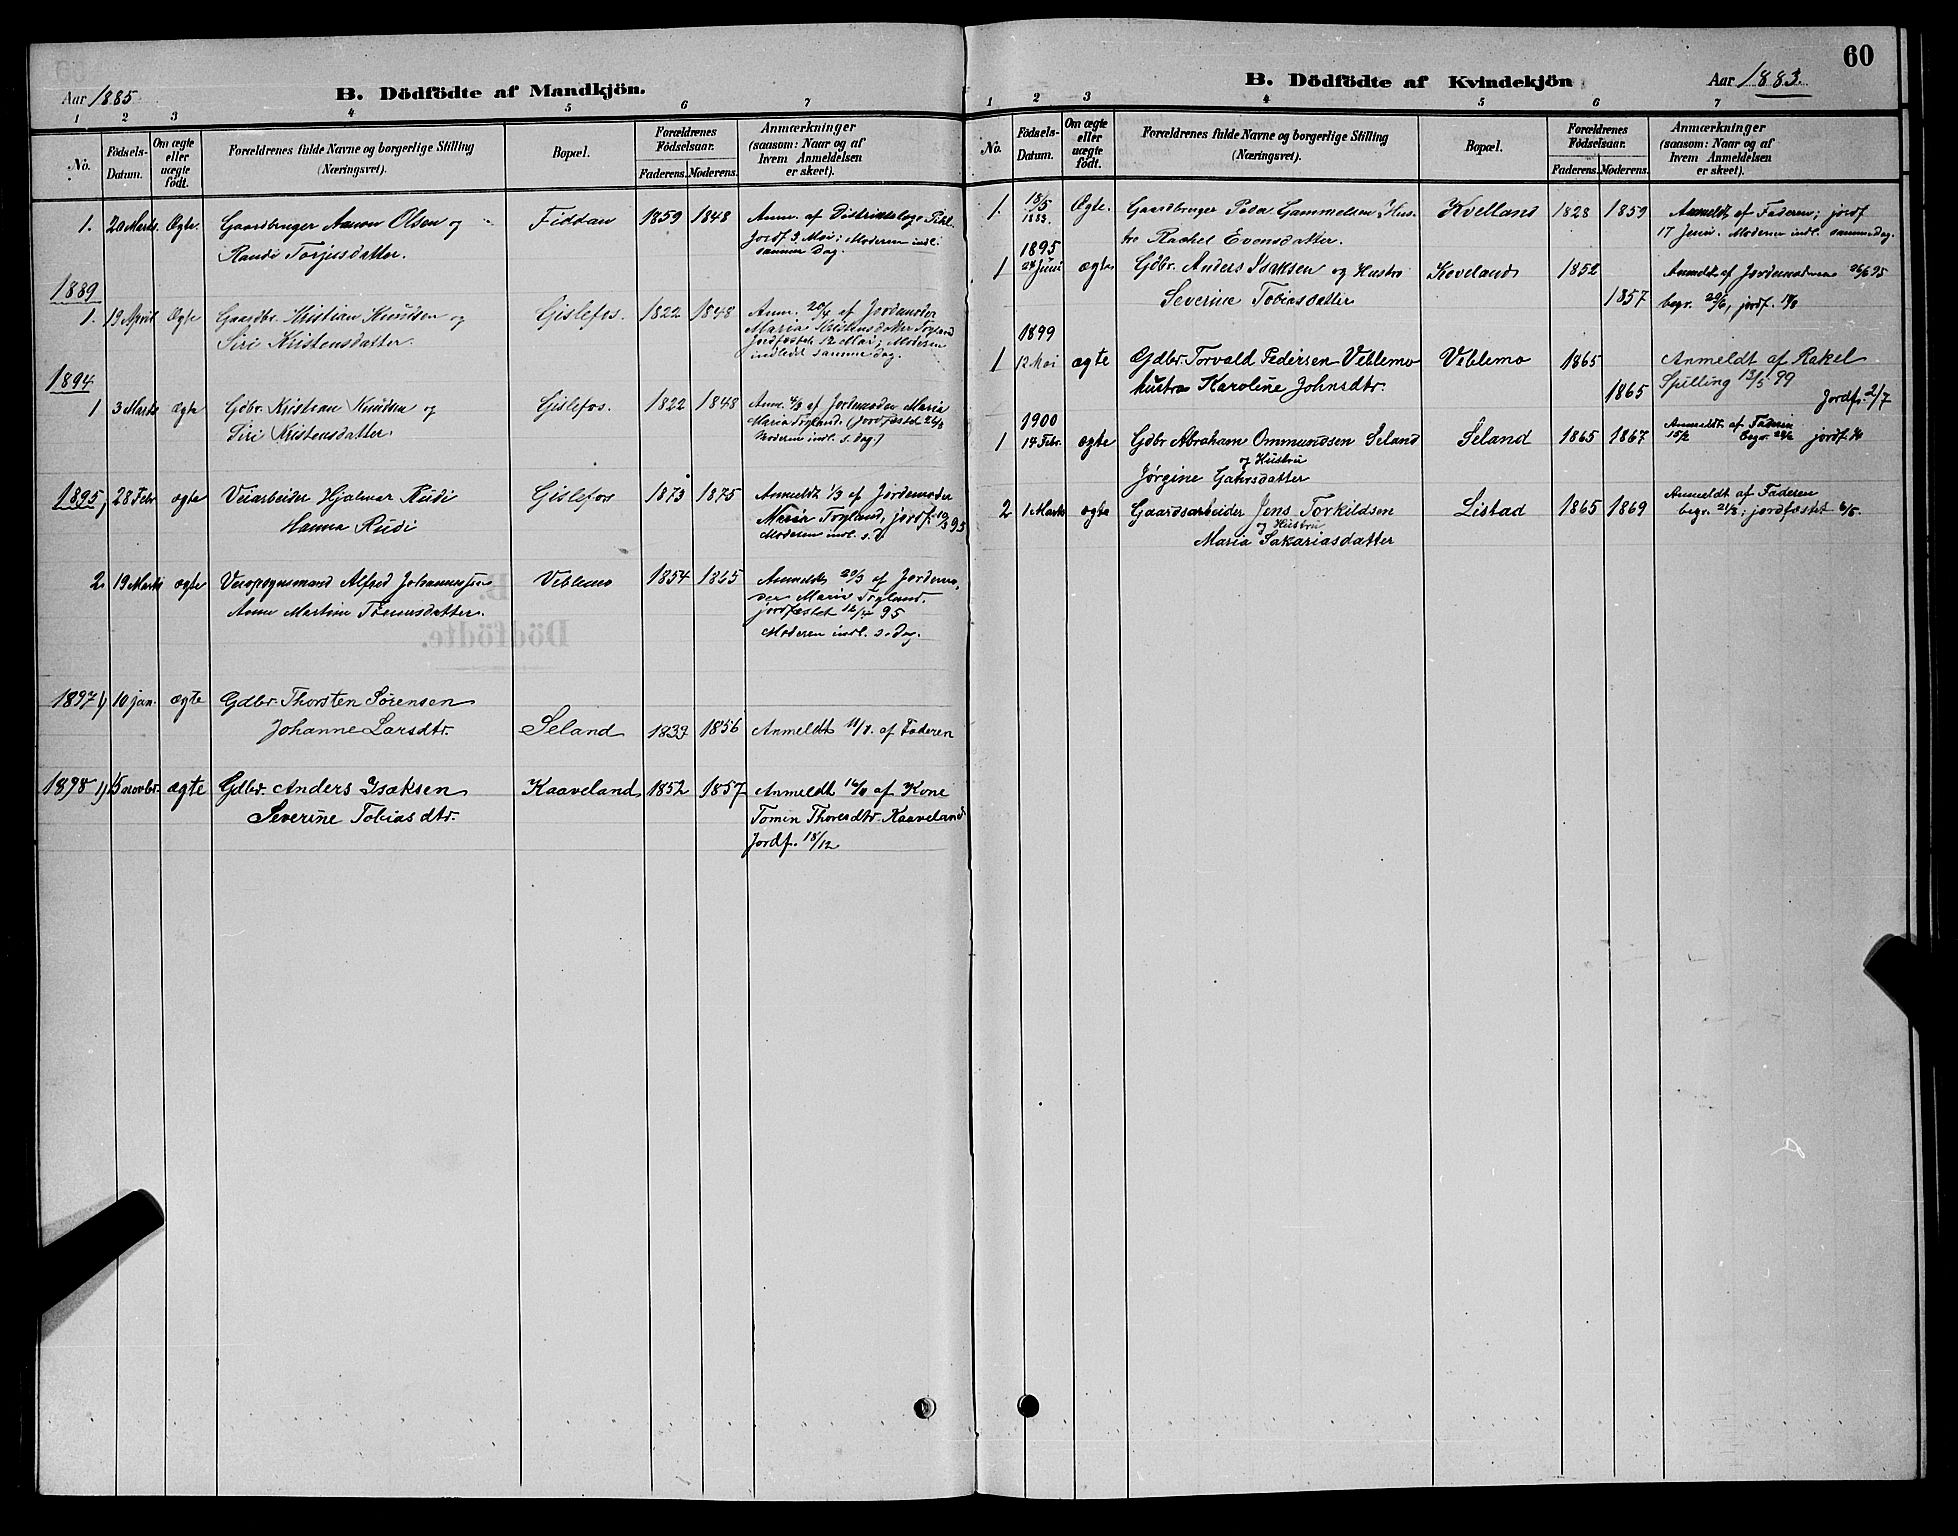 Aar 1885
B. Dödfödte af Mandkjön.
1 2 3 4 5 6 7
No. Födsels-Datum. Om ægte eller uægte födt. Forældrenes fulde Navne og borgerlige Stilling (Næringsvei). Bopæl. Forældrenes Födselsaar. Faderens. Moderens. Anmærkninger (saasom: Naar og af hvem Anmeldelsen er skeet).
1. 20 Marts. Ægte. Gaardbruger Aanon Olsen og Fiddan 1859 1848 Anm. af Distriktslæge
Randi Torjusdatter. Jordf. 3. Mai; Moderen indl.
samme Dag.
1889
1. 19 April Ægte Gaardbr. Kristian Knudsen og Gislefos. 1822 1848 Anm. 20/4 af Jordemoder
Siri Kristensdatter. Maria Kristensdatter Togland
Jordfæstet 12 Mai; Moderen
indledt samme dag.
1894
1 3 Marts ægte Gdbr. Kristian Knudsen og Gislefos. 1822 1848 Anm. 4/3 af Jordemoder Maria
Siri Kristensdatter. Maria Togland. (Jordfæstet 26/3
Moderen indl. s. dag.)
1895, 28 Febr ægte Veiarbeider Hjalmar Rudi Gislefos 1873 1875 Anmeldt 1/3 af Jordemoder
Hanna Rudi Maria Togland, jordf. 10/3 95
Moderen indl. s. d
2. 19 Marts ægte Veiopsynsmand Alfred Johannesen Veblemo 1854 1865 Anmeldt 20/3 af Jordemo-
Anne Martine Tønnesdatter. der Maria Togland.
jordfæstet 12/4 95
Moderen indl. s. Dag.
1897 1) 10 jan. ægte Gdbr. Thorsten Sørensen
Johanne Larsdtr. Seland 1839 1856 Anmeldt 11/1. af Faderen
1898 1) 15 novbr. ægte Gdbr. Anders Isaksen Kaaveland 1852 1857 Anmeldt 16/11 af Kone
Severine Tobiasdtr. Tomin Thoresdtr. Kaaveland
Jordf. 18/12
60
B. Dödfödte af Kvindekjön
Aar 1883.
1 2 3 4 5 6 7
No. Födsels-Datum. Om ægte eller uægte födt. Forældrenes fulde Navne og borgerlige Stilling (Næringsvei). Bopæl. Forældrenes Födselsaar. Faderens. Moderens. Anmærkninger (saasom: Naar og af hvem Anmeldelsen er skeet).
1. 18/5 1883. Ægte. Gaardbruger Peder Gammelsen Hus- Kvelland 1828 1859 Anmeldt af Faderen; jordf
tro Rachel Evensdatter. 17 Juni. Moderen indl. samme Dag.
1895
1 24 Juni ægte Gdbr. Anders Isaksen og Hustro Koveland 1852 Anmeldt af Jordemoderen 26/6 95
Severine Tobiasdatter 1857 begr. 29/6, jordf.
1899
1 12 Mai ægte Gdbr. Torvald Pedersen Veblemo Veblemo 1865 Anmeldt af Rakel
hustro Karoline Johnsdtr. 1865 Spilling 13/5 99
Jordf. 2/7
1900
1 14 Febr. ægte Gdbr Abraham Ommundsen Seland Seland 1865 1867 Anmeldt af Faderen
15/2 begr. jordf.
og Hustru
Jørgine Gahrsdatter
2 1 Marts ægte Gaardsarbeider Jens Torkildsen Listad 1865 1869 Anmeldt af Faderen
og Hustru begr. 21/3; jordfæstet 6/5.
Maria Sakariasdatter